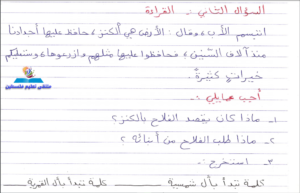 السؤال الثاني :- القراءة
ابتسم الأب ، وقال : الأرض هي الكنز ، حافظ عليها أجدادنا
منذ آلاف السنين ، فحافظوا عليها مثلهم وازرعوها ، وستعطيكم
خيرات كثيرة .
أجب عما يلي :-
١- ماذا كان يقصد الفلاح بالكنز ؟
٢- ماذا طلب الفلاح من أبنائه ؟
٣- استخرج :-
كلمة تبدأ بأل شمسية كلمة تبدأ بأل القمرية
ملتقى تعليم فلسطين